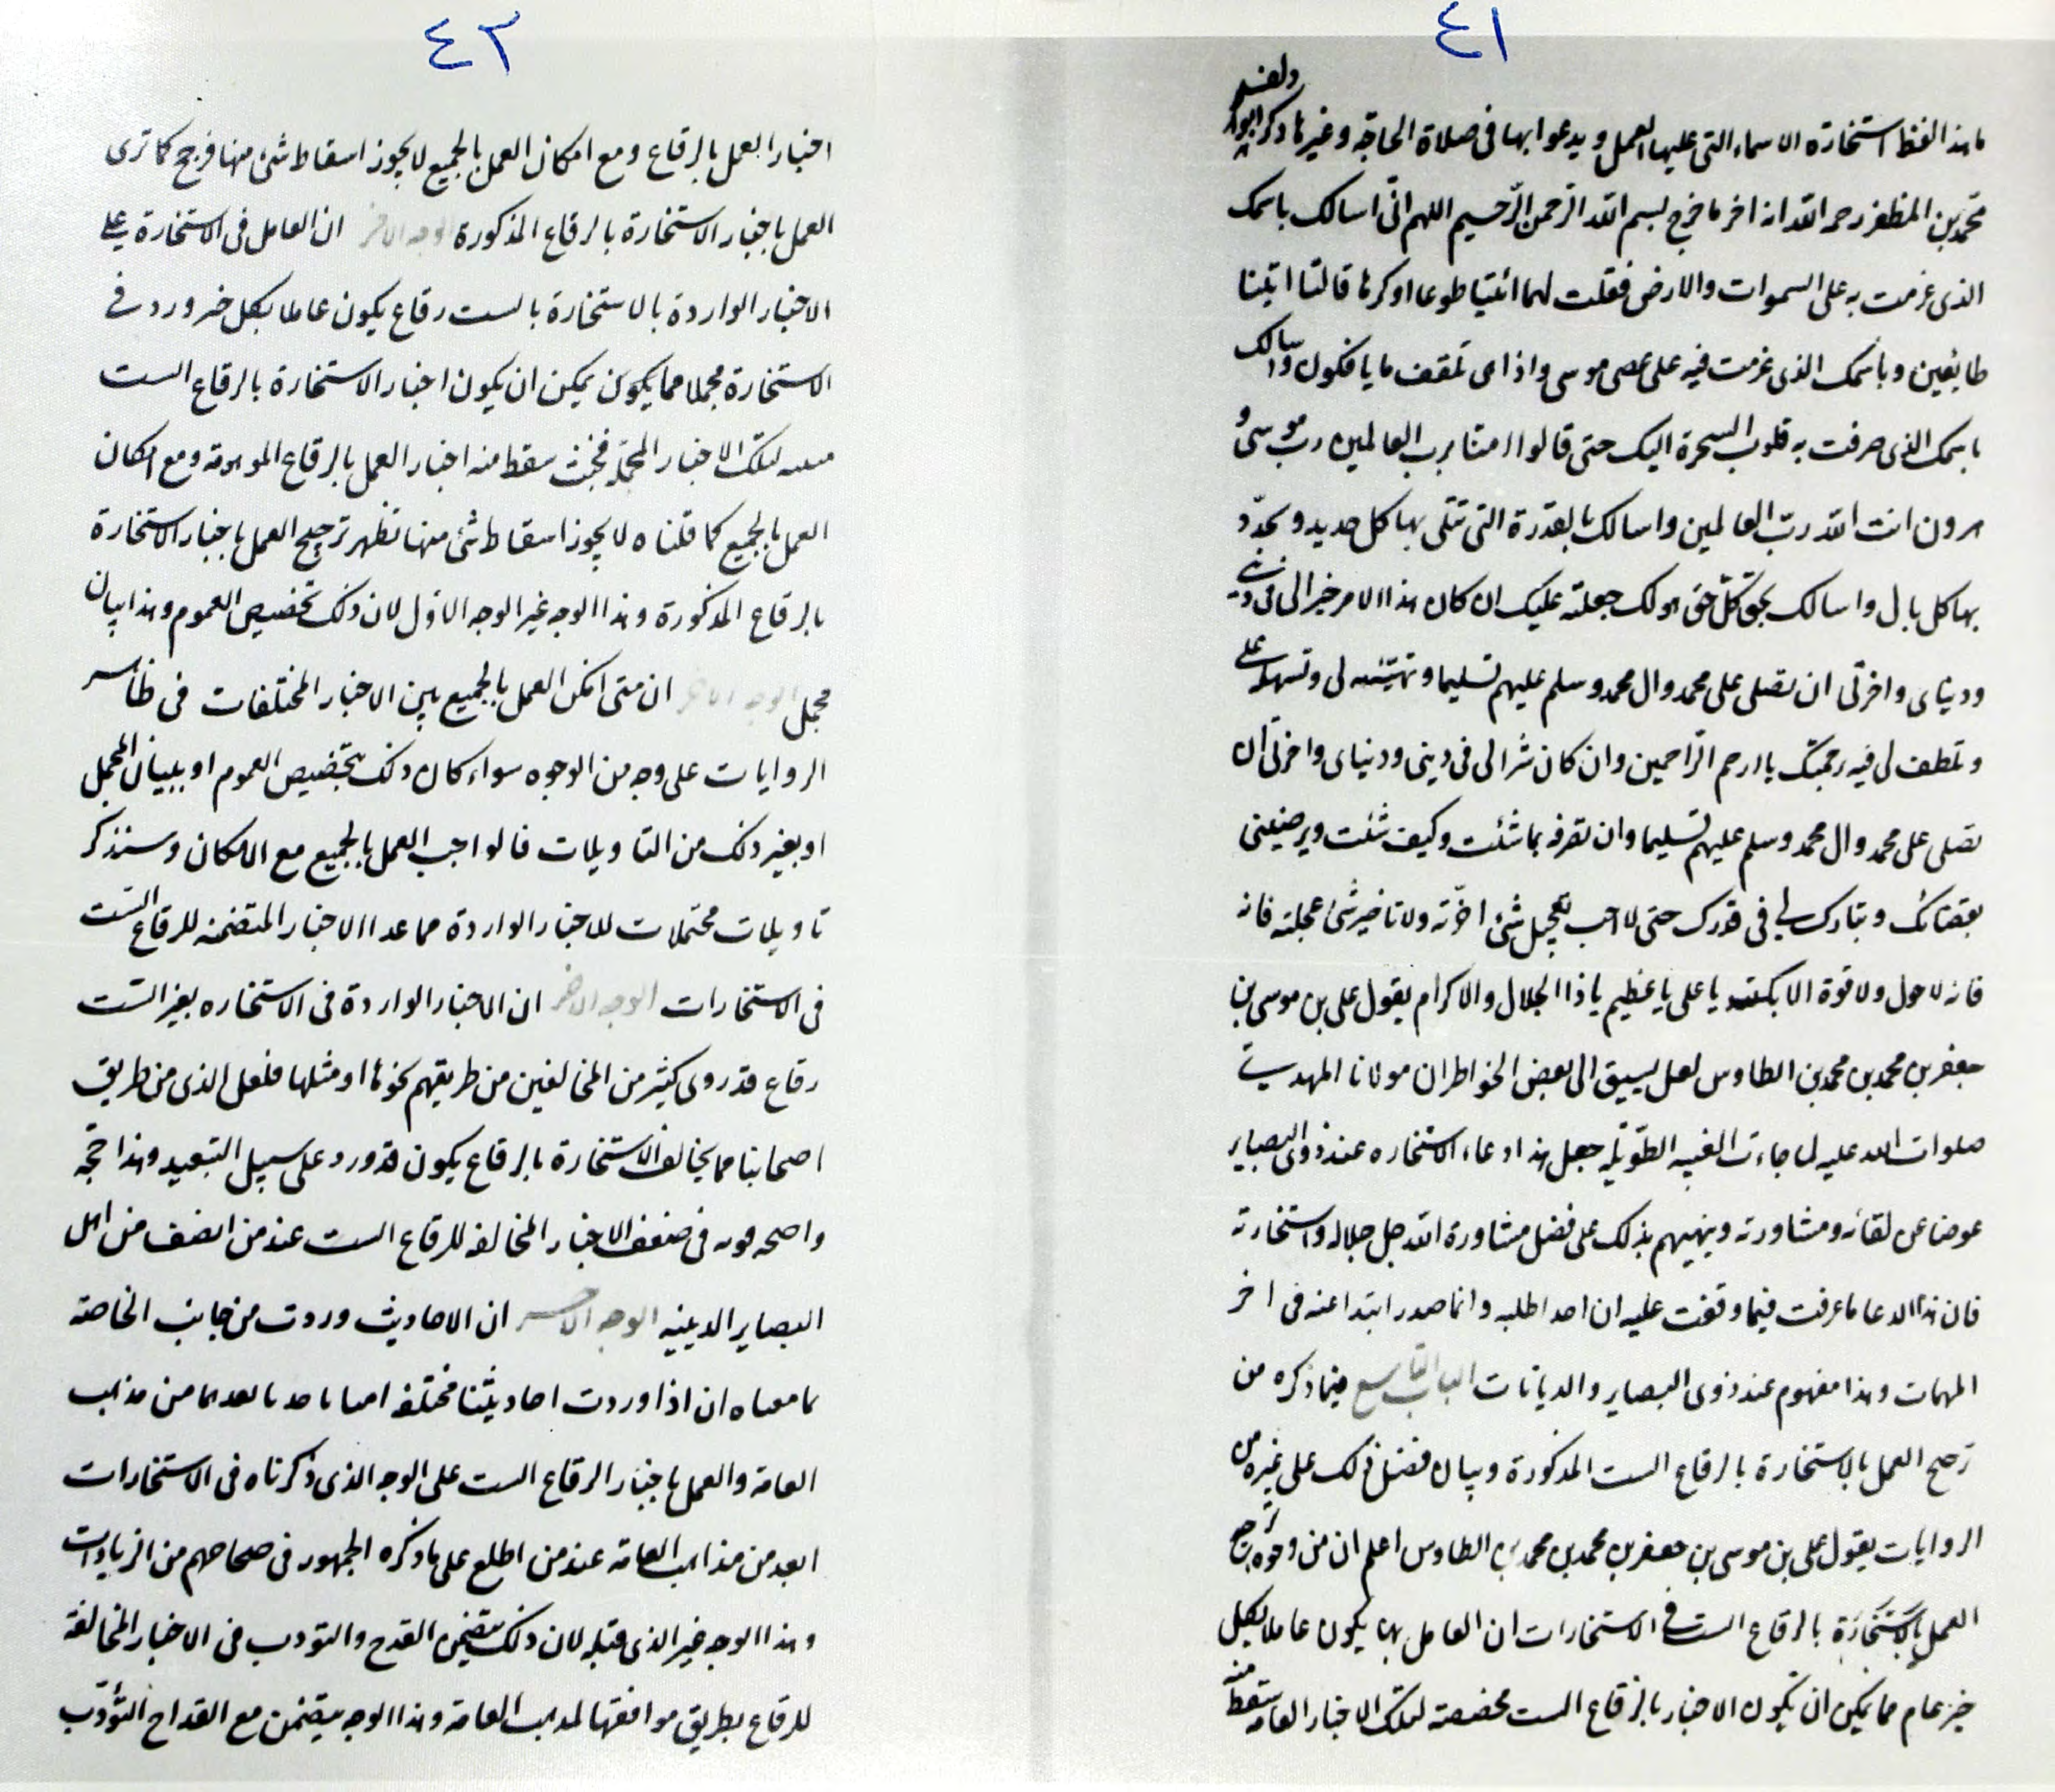 ٤١
ما هذا لفظ استخارة الاسماء التى عليها العمل ويدعوا بها فى صلاة الحاجة وغيرها ذكر ابو دلف
محمد بن المظفر رحمه الله انه اخر ما خرج بسم الله الرحمن الرّحيم اللهم انّى اسالك باسمك
الذى عزمت به على السموات والارض فقلت لهما ائتيا طوعا او كرها قالتا اتينا
طايعين وباسمك الذى عزمت فيه على عصى موسى واذاهى تلقف ما يافكون واسالك
باسمك الذى صرفت به قلوب السحرة اليك حتى قالوا امنا برب العالمين رب موسى و
هرون انت الله ربّ العالمين واسالك بالقدرة التى تبلى بها كل جديد وتجدّد
بها كل بال واسالك بحق كلّ حق هو لك جعلته عليك ان كان هذا الامر خيرا لى فى دينى
ودنياى واخرتى ان تصلى على محمد وال محمد وسلم عليهم تسليما وتهيئه لى وتسهله على
وتلطف لى فيه برحمتك يا ارحم الرّاحمين وان كان شرا لى فى دينى ودنياى واخرتى ان
تصلى على محمد وال محمد وسلم عليهم تسليما وان تصرفه بما شئت وكيف شئت وترضينى
بقضائك وتبارك لى فى قدرك حتى لا احب تعجيل شئ اخّرته ولا تاخير شئ عجلته فانه
فانه لا حول ولا قوة الا بك يا على يا عظيم يا ذا الجلال والاكرام يقول على بن موسى بن
جعفر بن محمد بن محمد بن الطاوس لعل يسبق الى بعض الخواطر ان مولانا المهدى
صلوات الله عليه لما جاءت الغيبه الطّويله جعل هذا دعاء الاستخاره عند ذوى البصاير
عوضا عن لقائه ومشاورته وينبههم بذلك على فضل مشاورة الله جل جلاله واستخارته
فان هذا الدعا ما عرفت فيما وقفت عليه ان احدا طلبه وانما صدر ابتدا عنه فى اخر
المهمات وهذا مفهوم عند ذوى البصاير والديانات الباب التاسع فيما ذكره من
ترجيح العمل بالاستخارة بالرقاع الست المذكورة وبيان فضل ذلك على غيره من
الروايات يقول على بن موسى بن جعفر بن محمد بن محمد بن الطاوس اعلم ان من وجوه ترجيح
العمل بالاستخارة بالرقاع الست فى الاستخارات ان العامل بها يكون عاملا بكل
خبر عام مما يمكن ان يكون الاخبار بالرقاع الست مخصصة لتلك الاخبار العامه سقط منه
٤٢
اخبار العمل بالرقاع ومع امكان العمل بالجميع لا يجوز اسقاط شئ منها فرجح كما ترى
العمل باخبار الاستخارة بالرقاع المذكورة الوجه الاخر ان العامل فى الاستخارة على
الاخبار الواردة بالاستخارة بالست رقاع يكون عاملا بكل خبر ورد فى
الاستخارة مجملا مما يكون يمكن ان يكون اخبار الاستخارة بالرقاع الست
مبينه لتلك الاخبار المجملة سقط منه اخبار العمل بالرقاع الموهومة ومع امكان
العمل بالجميع كما قلناه لا يجوز اسقاط شئ منها فظهر ترجيح العمل باخبار الاستخارة
بالرقاع المذكورة وهذا الوجه غير الوجه الاول لان ذلك تخصيص العموم وهذا بيان
مجمل الوجه الاخر ان متى امكن العمل بالجميع بين الاخبار المختلفات فى ظاهر
الروايات على وجه من الوجوه سواء كان ذلك بتخصيص العموم او ببيان المجمل
او بغير ذلك من التاويلات فالواجب العمل بالجميع مع الامكان وسنذكر
تاويلات محتملات للاخبار الواردة مما عدا الاخبار المتضمنه للرقاع الست
فى الاستخارات الوجه الاخر ان الاخبار الواردة فى الاستخاره بغير الست
رقاع قد روى كثير من المخالفين من طريقهم نحوها او مثلها فلعل الذى من طريق
اصحابنا مما يخالف الاستخارة بالرقاع يكون قد ورد على سبيل التبعيد وهذا حجه
واضحه قويه فى ضعف الاخبار المخالفه للرقاع الست عند من انصف من اهل
البصاير الدينيه الوجه الاخر ان الاحاديث وردت من جانب الخاصه
بما معناه ان اذا وردت احاديثنا مختلفه اننا ناخذ بابعدها من مذاهب
العامه والعمل باخبار الرقاع الست على الوجه الذى ذكرناه فى الاستخارات
ابعد من مذاهب العامه عند من اطلع على ما ذكره الجمهور فى صحاحهم من الزيادات
وهذا الوجه غير الذى قبله لان ذلك يتضمن القدح والتودب فى الاخبار المخالفة
للرقاع بطريق موافقتها لمذهب العامه وهذا الوجه يتضمن مع القداح التودّب